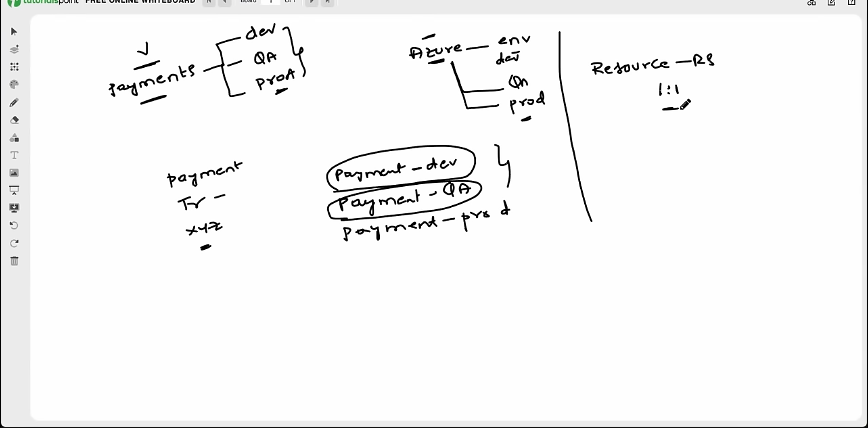 tutorialspoint FREE ONLINE WHITEBOARD
payments
dev
QA
prod
Azure — env
dev
QA
prod
Resource — RG
1:1
payment
Tr —
xyz
payment - dev
payment - QA
payment - prod
T